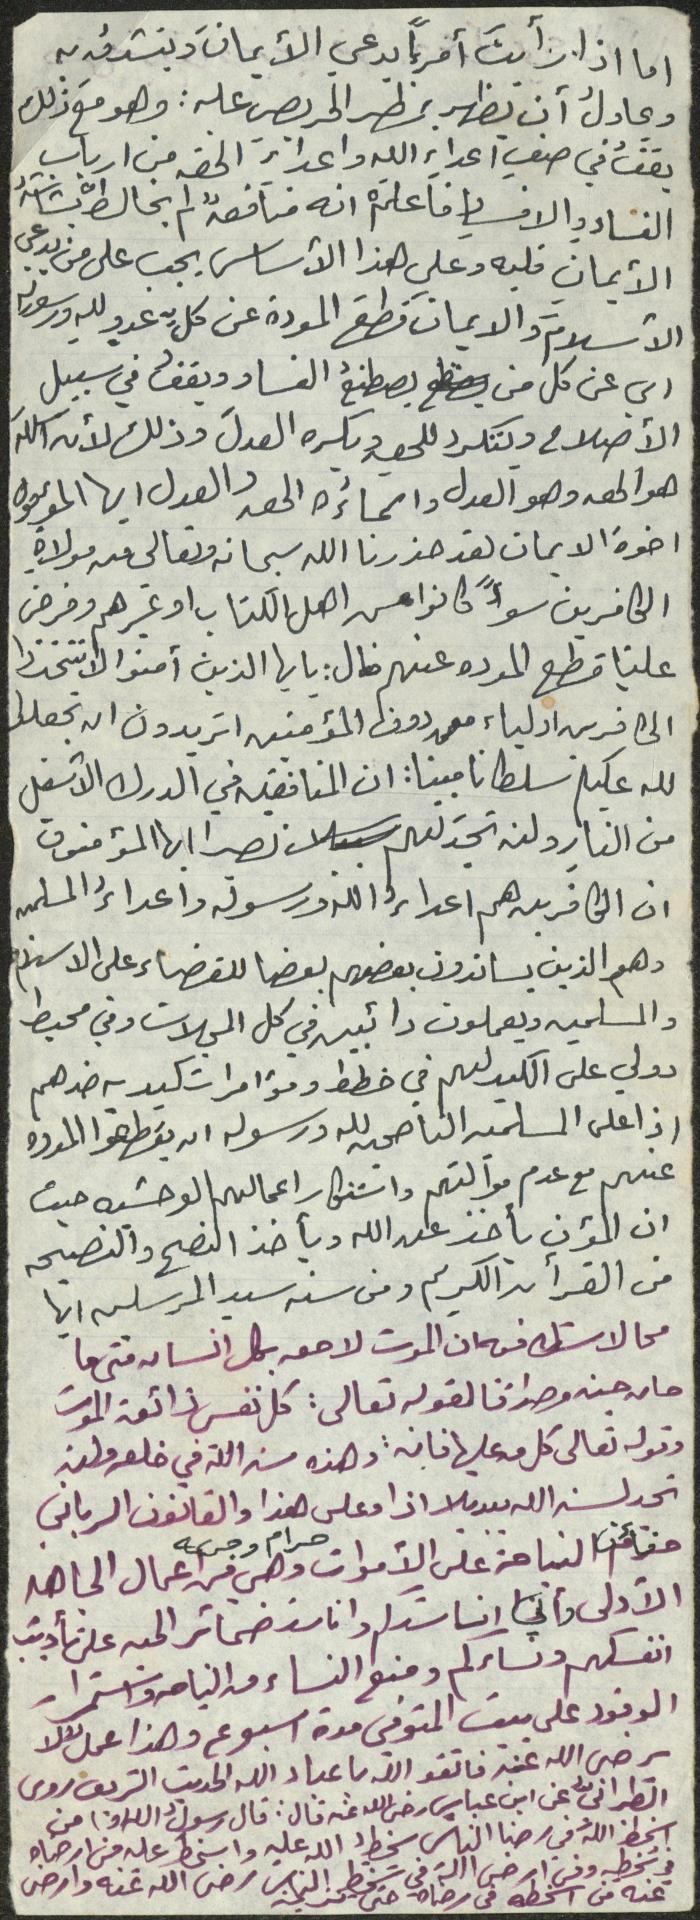 اما اذا رأيتَ أمرءً يدعي الأيمانَ ويتشدقُ به
ويحاولُ أن يظهر بمظهر الحريص عليه: وهو معَ ذلك
يقفُ في صفِ اعداءِ اللهِ واعداءِ الحقِ من اربابِ
الفسادِ والافسادِ فاعلمْ انه منافقٌ لم يخالطْ بشاشةُ
الأيمانِ قلبه وعلى هذا الأساس يجب على من يدعي
الأسلامَ والايمانَ قطعَ المودة عن كلِ عدوٍ للهِ ورسوله
اي عن كل من يصطنعُ الفساد ويقفُ في سبيل
الأصلاح ويتنكرُ للحقِ ويكره العدلَ وذلك لأن اللهَ
هو الحق وهو العدل واسماؤه الحق والعدل ايها المؤمنون
اخوة الايمان لقد حذرنا الله سبحانه وتعالى من مولاةِ
الكافرين سوآءً كانوا من اهل الكتاب او غيرهم وفرض
علينا قطع الموده عنهم فقال: يايها الذين آمنوا لاتتخذوا
الكافرين اولياء من دون المؤمنين اتريدون ان تجعلوا
لله عليكم سلطانا مبينا: ان المنافقين في الدرك الأسفل
من النار ولن تجدَ لهم نصيرا ايها المؤمنون
ان الكافرين هم اعداءُ اللهَ ورسوله واعداءُ المسلمين
وهم الذين يساندون بعضهم بعضا للقضاء على الاسلام
والمسلمين ويعملون دائبين في كل المجلات وفي محيط
دولي على الكيد لهم في خطط ومؤامرات كيديه ضدهم
اذا على المسلمين الناصحين لله ورسوله ان يقطعوا الموده
عنهم مع عدم موآلتهم واستنكار اعمالهم الوحشيه حيث
ان المؤمن يأخذ عن الله ويأخذ النصح والنصيحه
من القرأن الكريم ومن سنه سيد المرسلين ايها
مما لاشك فيه ان الموت لاحق بكل انسان متى ما
حان حينه ومصداقا لقوله تعالى: كل نفس ذائقة الموت
وقوله تعالى كل من عليها فان: وهذه سنه الله في خلقه ولن
تجد لسنه الله تبديلا اذا وعلى هذا والقانون الرباني
النياحة على الأموات حرام وجريمه وهي من اعمال الجاهليه
الأولى وأني اناشدكم واناشد ضمائر الحيه على تأديب
انفسكم ونسائكم ومنع النساء من النياحه واستمرار
الوفود على بيت المتوفى مدة اسبوع وهذا عمل لا
يرضى الله عنه فاتقو الله ياعباد الله الحديث الشريف روى
الطبراني عن ابن عباس رضي الله عنه قال: قال رسولُ الله من
اسخط اللهَ في رضا الناس سخطَ الله عليه واسخط عليه من ارضاه
في سخطه ومن ارضى الله في سخط الناس رضى الله عنه وارضى
عنه من اسخطه في رضاه حتى يزينه